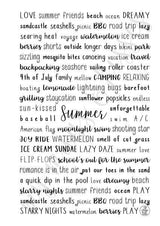 LOVE summer friends beach ocean DREAMY
sandcastle seashells picnic BBQ road trip lazy
searing heat voyage watermelon ice cream
berries shorts outside longer days bikini park
sizzling mosquito bites canoeing vacation travel
backpacking seashore sailing roller coaster
4th of July family mellow CAMPING RELAXING
boating lemonade lightning bugs barefoot
grilling staycation sunflower popsicles endless
sun-kissed unforgettable
baseball Summer swim A/C
American flag moonlight swim shouting
JOY RIDE WATERMELON smell of cut grass
ICE CREAM SUNDAE LAZY DAZE summer love
FLIP FLOPS school's out for the summer
romance is in the air put our toes in the sand
a quick dip in the pool love dreamy beach
starry nights summer friends ocean PLAY
sandcastle seashells picnic BBQ road trip lazy
STARRY NIGHTS watermelon berries PLAY